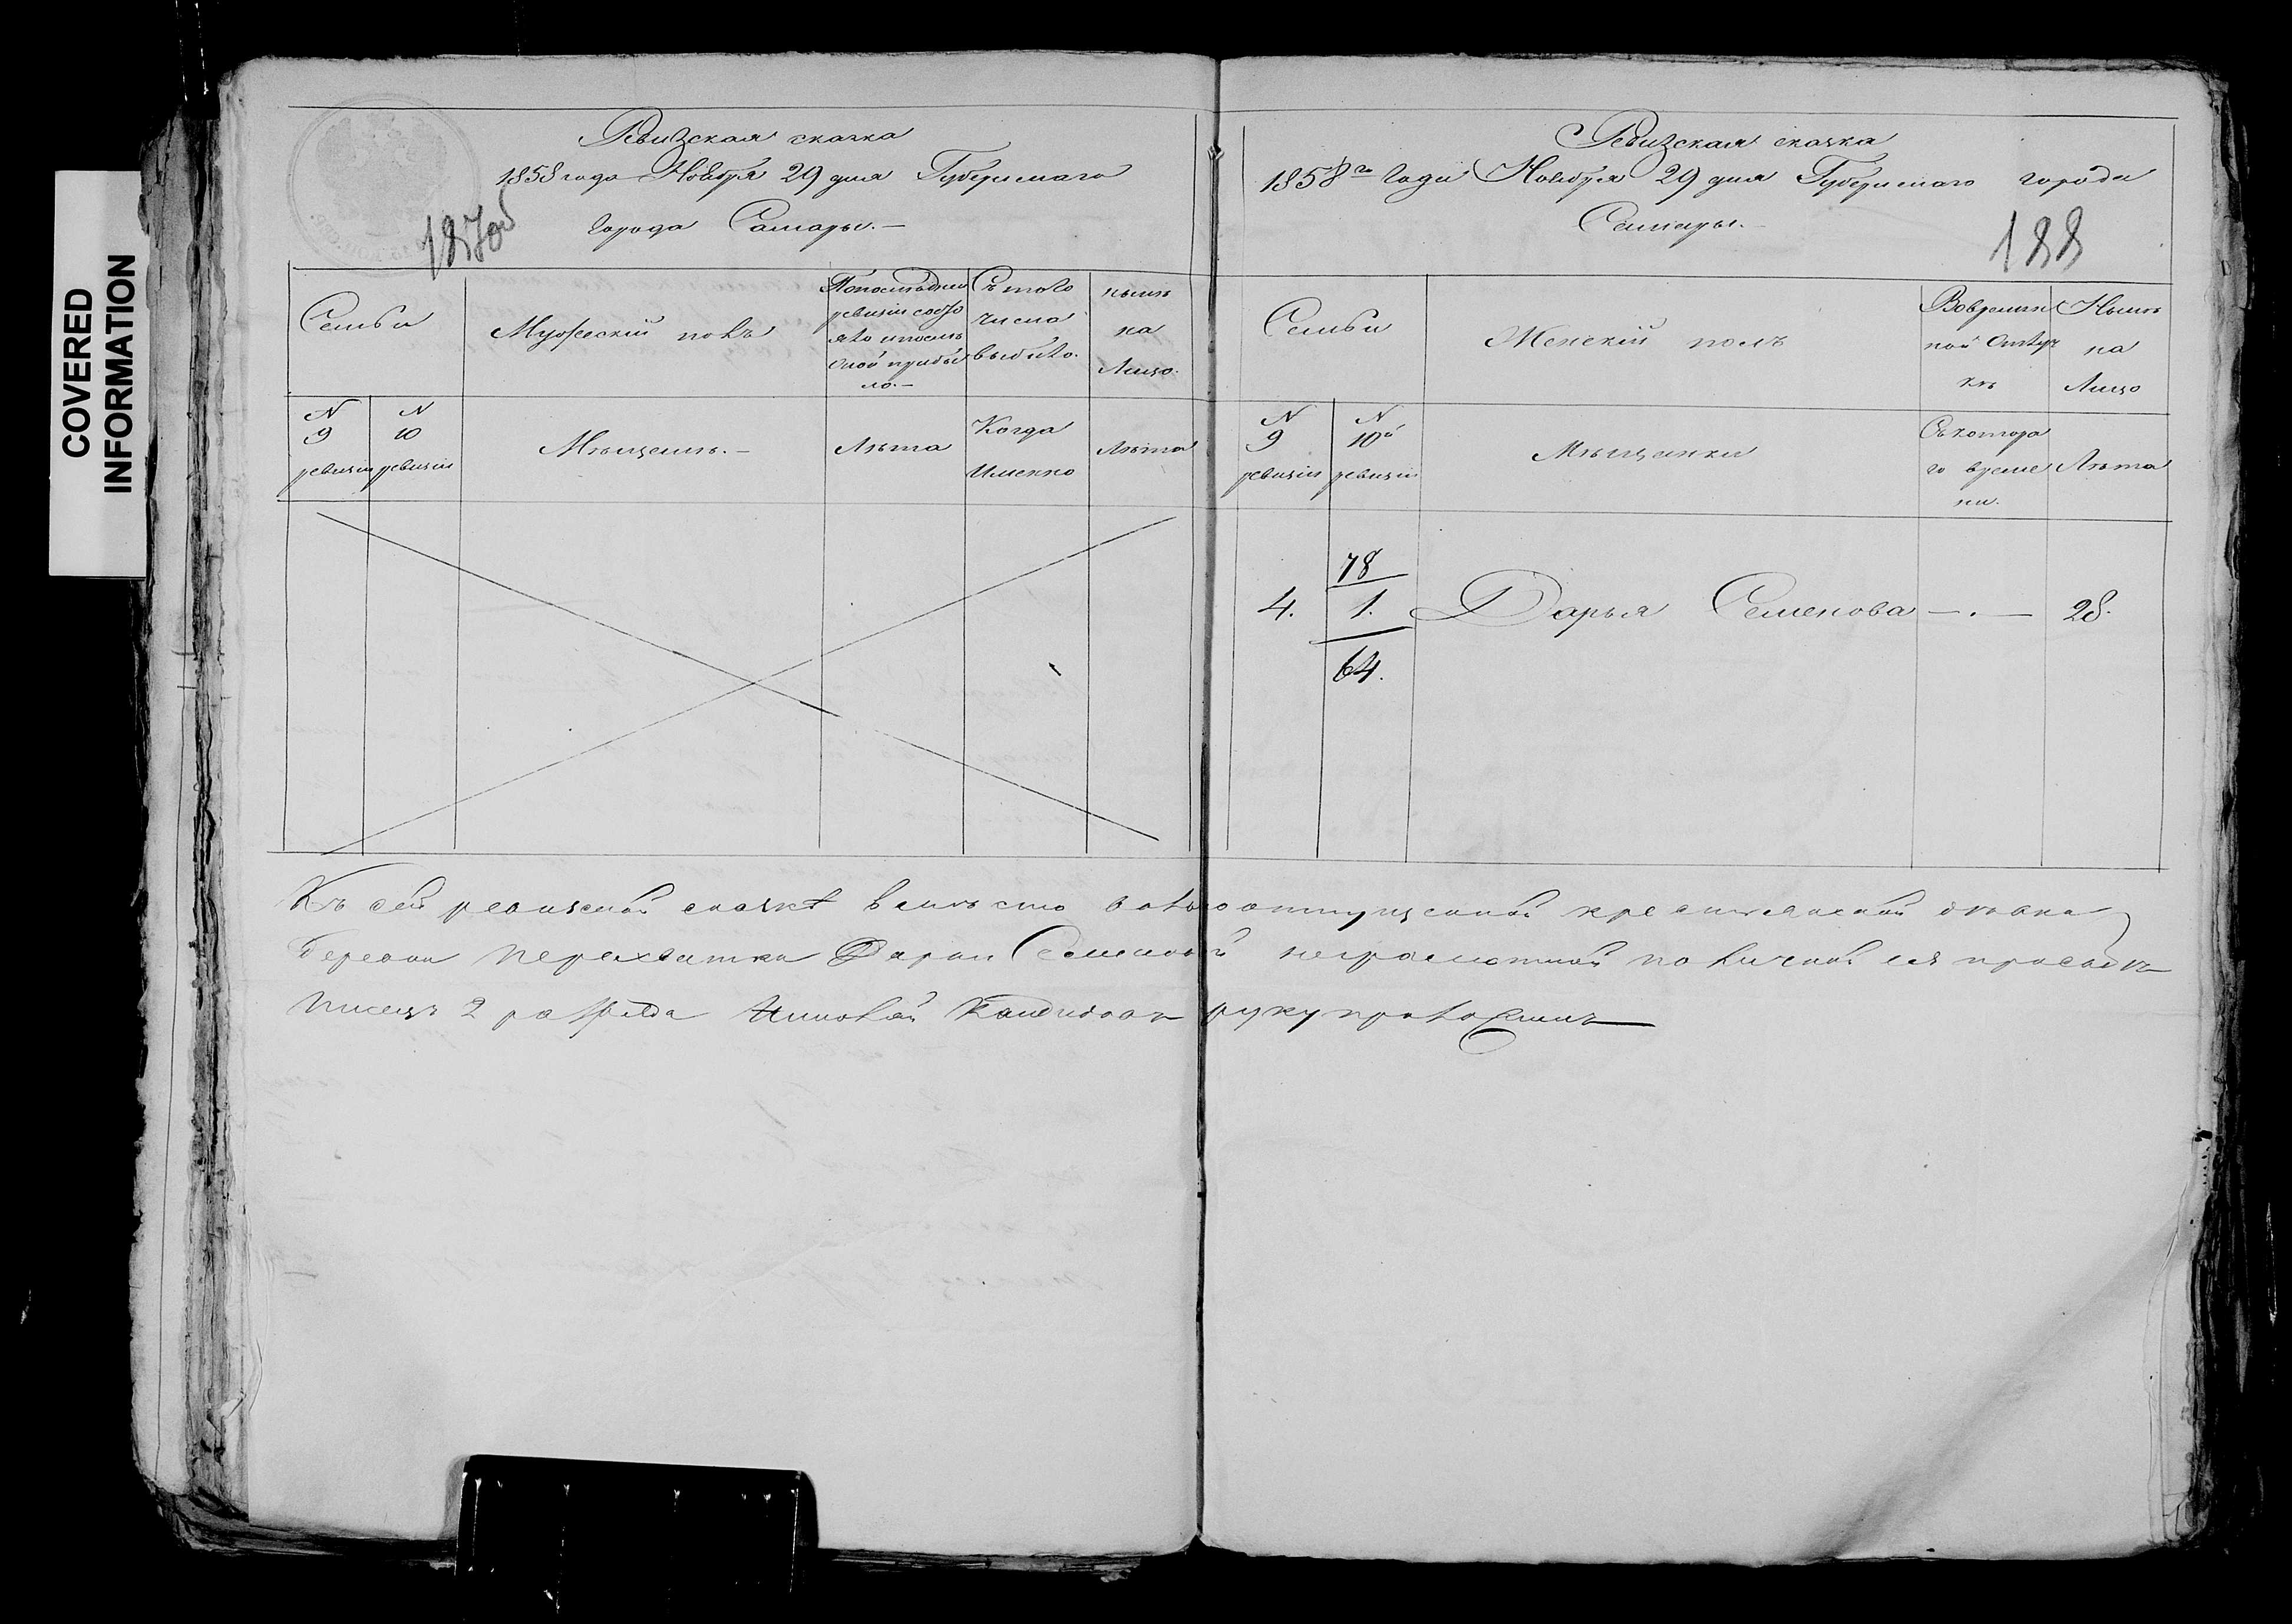 COVERED
INFORMATION
Ревизская сказка
1858 года Ноября 29 дня Губернскаго
Города Самары.
187 об
Семьи
Мужеский полъ
По последней
ревизіи состо
яло и после
оной прибы
ло.
Съ того
числа
выбыло.
ныне
на
Лицо.
N
9
ревизіи
N
10
ревизіи
Мещане.
Лета
Когда
Именно
Лета
Ревизская сказка
1858го Года Ноября 29 дня Губернскаго города
Самары.
188
Семьи
Женский полъ
Во времен
ной Отлуч
ке
Ныне
на
Лицо
N
9
ревизіи
N
10й
ревизіи
Мещанки
Съ котора
го време
ни.
Лета
78
4. 1. Дарья Семенова — . — 28.
64.
Къ сей ревизской сказке вместо вольноотпущенной крестьянской
деревни Перехватки Дарьи Семеновой неграмотной по личной ея просьбе
Писецъ 2 разряда Кандидовъ руку приложилъ